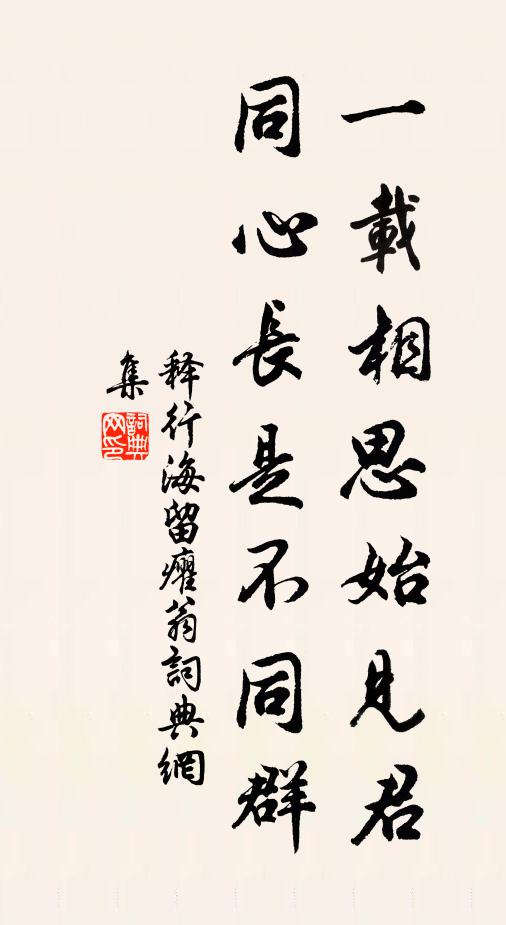 一載相思始見君
同心長是不同群
释行海留癯翁詞典網
集
詞典
网印